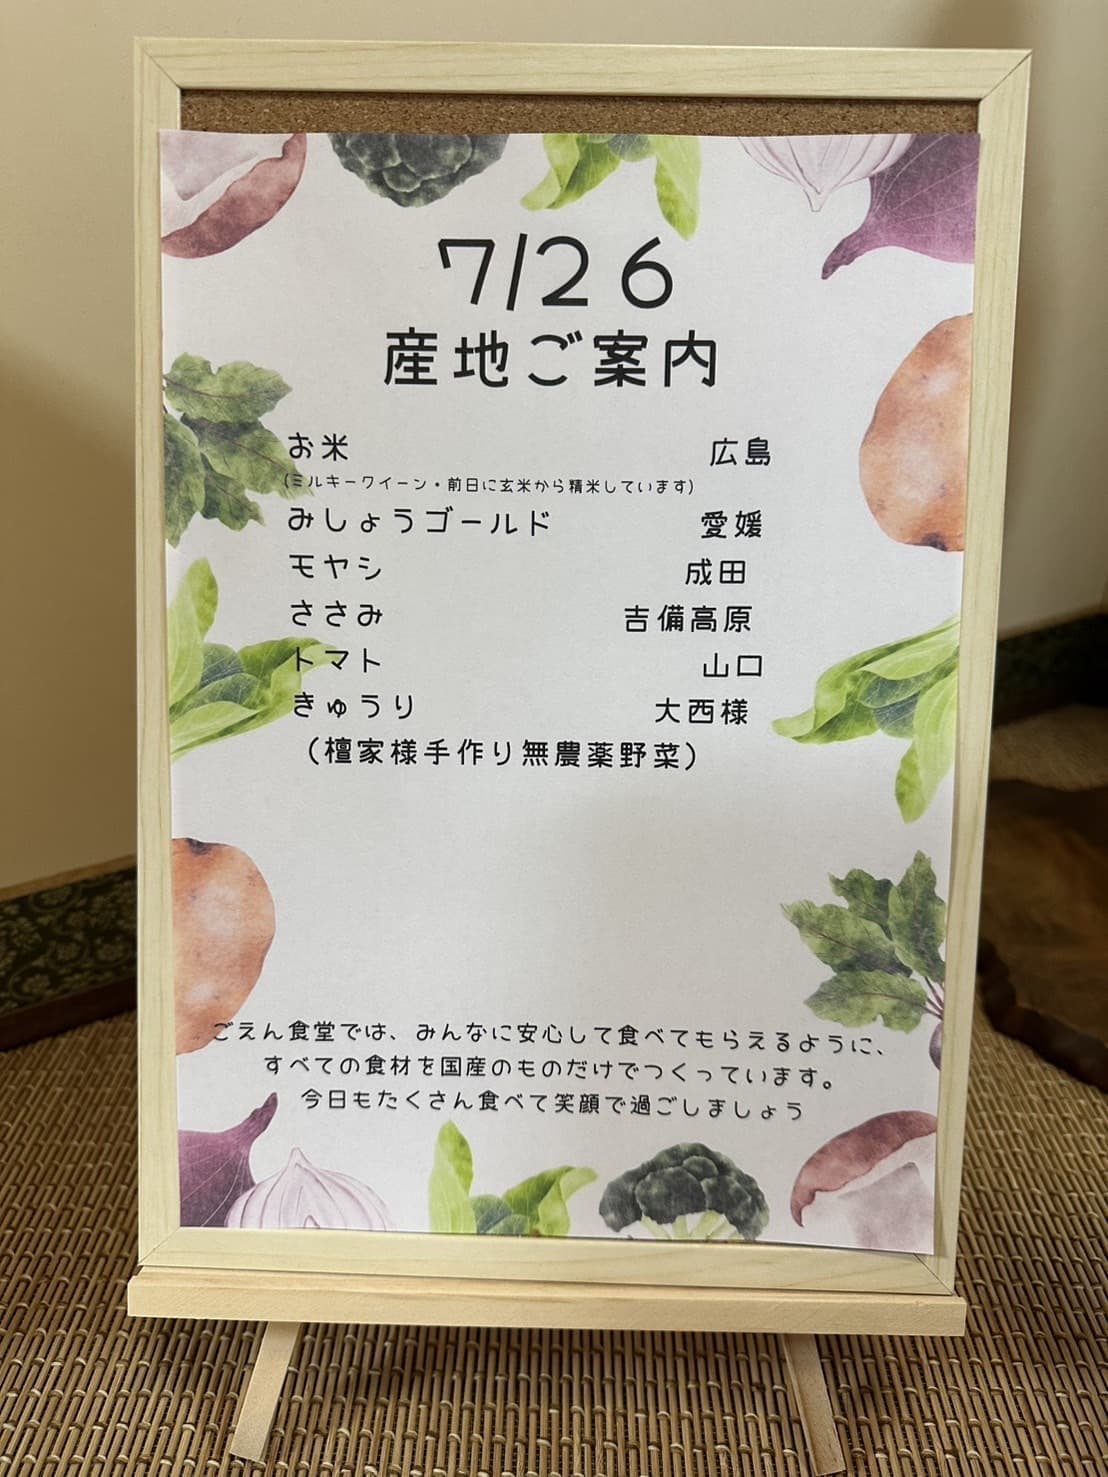 7/26
産地ご案内
お米 広島
(ミルキークイーン・前日に玄米から精米しています)
みしょうゴールド 愛媛
モヤシ 成田
ささみ 吉備高原
トマト 山口
きゅうり 大西様
(檀家様手作り無農薬野菜)
ごえん食堂では、みんなに安心して食べてもらえるように、
すべての食材を国産のものだけでつくっています。
今日もたくさん食べて笑顔で過ごしましょう